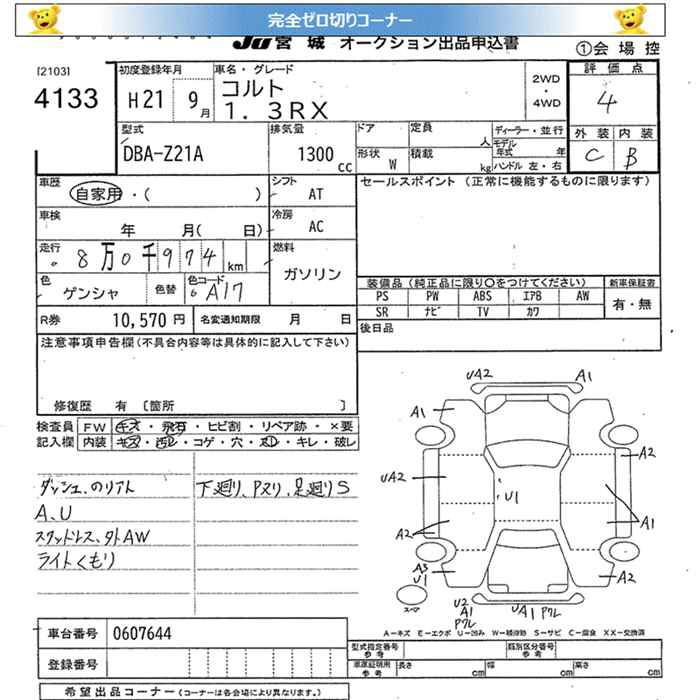 完全ゼロ切りコーナー
JU宮城 オークション出品申込書
①会場控
[2103]
4133
初度登録年月
H21 9月
車名・グレード
コルト
1.3RX
2WD
・
4WD
評価点
4
外装 内装
C B
型式
DBA-Z21A
排気量
1300cc
ドア 定員 人
形状 W 積載 kg
ディーラー・並行
モデル年式 年
ハンドル 左・右
車歴
自家用・( )
シフト
AT
セールスポイント (正常に機能するものに限ります)
車検
年 月( 日)
冷房
AC
走行
8万0千974km
燃料
ガソリン
色
ゲンシャ
色替
色コード
A17
装備品(純正品に限り○をつけてください)
新車保証書
PS PW ABS エアB AW
有・無
SR ナビ TV カワ
R券 10,570円
名変通知期限 月 日
後日品
注意事項申告欄(不具合内容等は具体的に記入して下さい)
修復歴 有 〔箇所 〕
検査員 FW キズ・飛石・ヒビ割・リペア跡・×要
記入欄 内装 キズ・汚レ・コゲ・穴・スレ・キレ・破レ
ダッシュ、のリアト
A、U
スタッドレス、外AW
ライトくもり
下廻り、Pヌリ、足廻りS
UA2
A1
A1
A2
UA2
U1
A2
A1
A3
U1
A2
スペア
U2
A1
Pワレ
UA1 Pワレ
A−キズ E−エクボ U−凹み W−補修跡 S−サビ C−腐食 XX−交換済
車台番号 0607644
登録番号
型式指定番号
参考
類別区分番号
参考
車庫証明用
参考
長さ cm
幅 cm
高さ cm
希望出品コーナー(コーナーは各会場により異なります。)